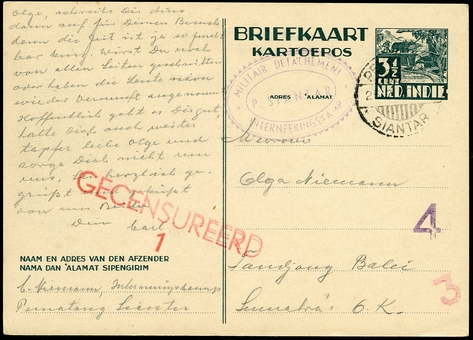 Olga, schreib Dir dies
dann auf für Deinen Besuch
denn die Zeit ist ja so furcht
bar kurz. Wirst Du noch
von allen Seiten geschnitten
oder haben die Leute schon
wieder Vernunft angenommen
Hoffentlich geht es Dir gut,
halte Dich auch weiter
tapfer liebe Olga und
sorge Dich nicht um
uns. Sei herzlich ge-
grüsst und geküsst
von
Dein Carl
NAAM EN ADRES VAN DEN AFZENDER
NAMA DAN 'ALAMAT SIPENGIRIM
C. Niemann, Interneeringskamp
Pematang Siantar
GECENSUREERD
1
BRIEFKAART
KARTOEPOS
ADRES ALAMAT
MILITAIR DETACHEMENT
P. SIANTAR
INTERNEERINGSKAMP
3½
CENT
NED. INDIE
SIANTAR
Mevrouw
Olga Niemann
4
Tandjong Balei
3
Sumatra O.K.